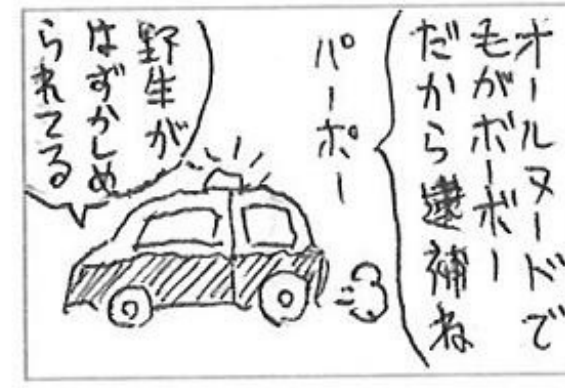 オールヌードで
毛がボーボー
だから逮補ね
パーポー
野生が
はずかしめ
られてる